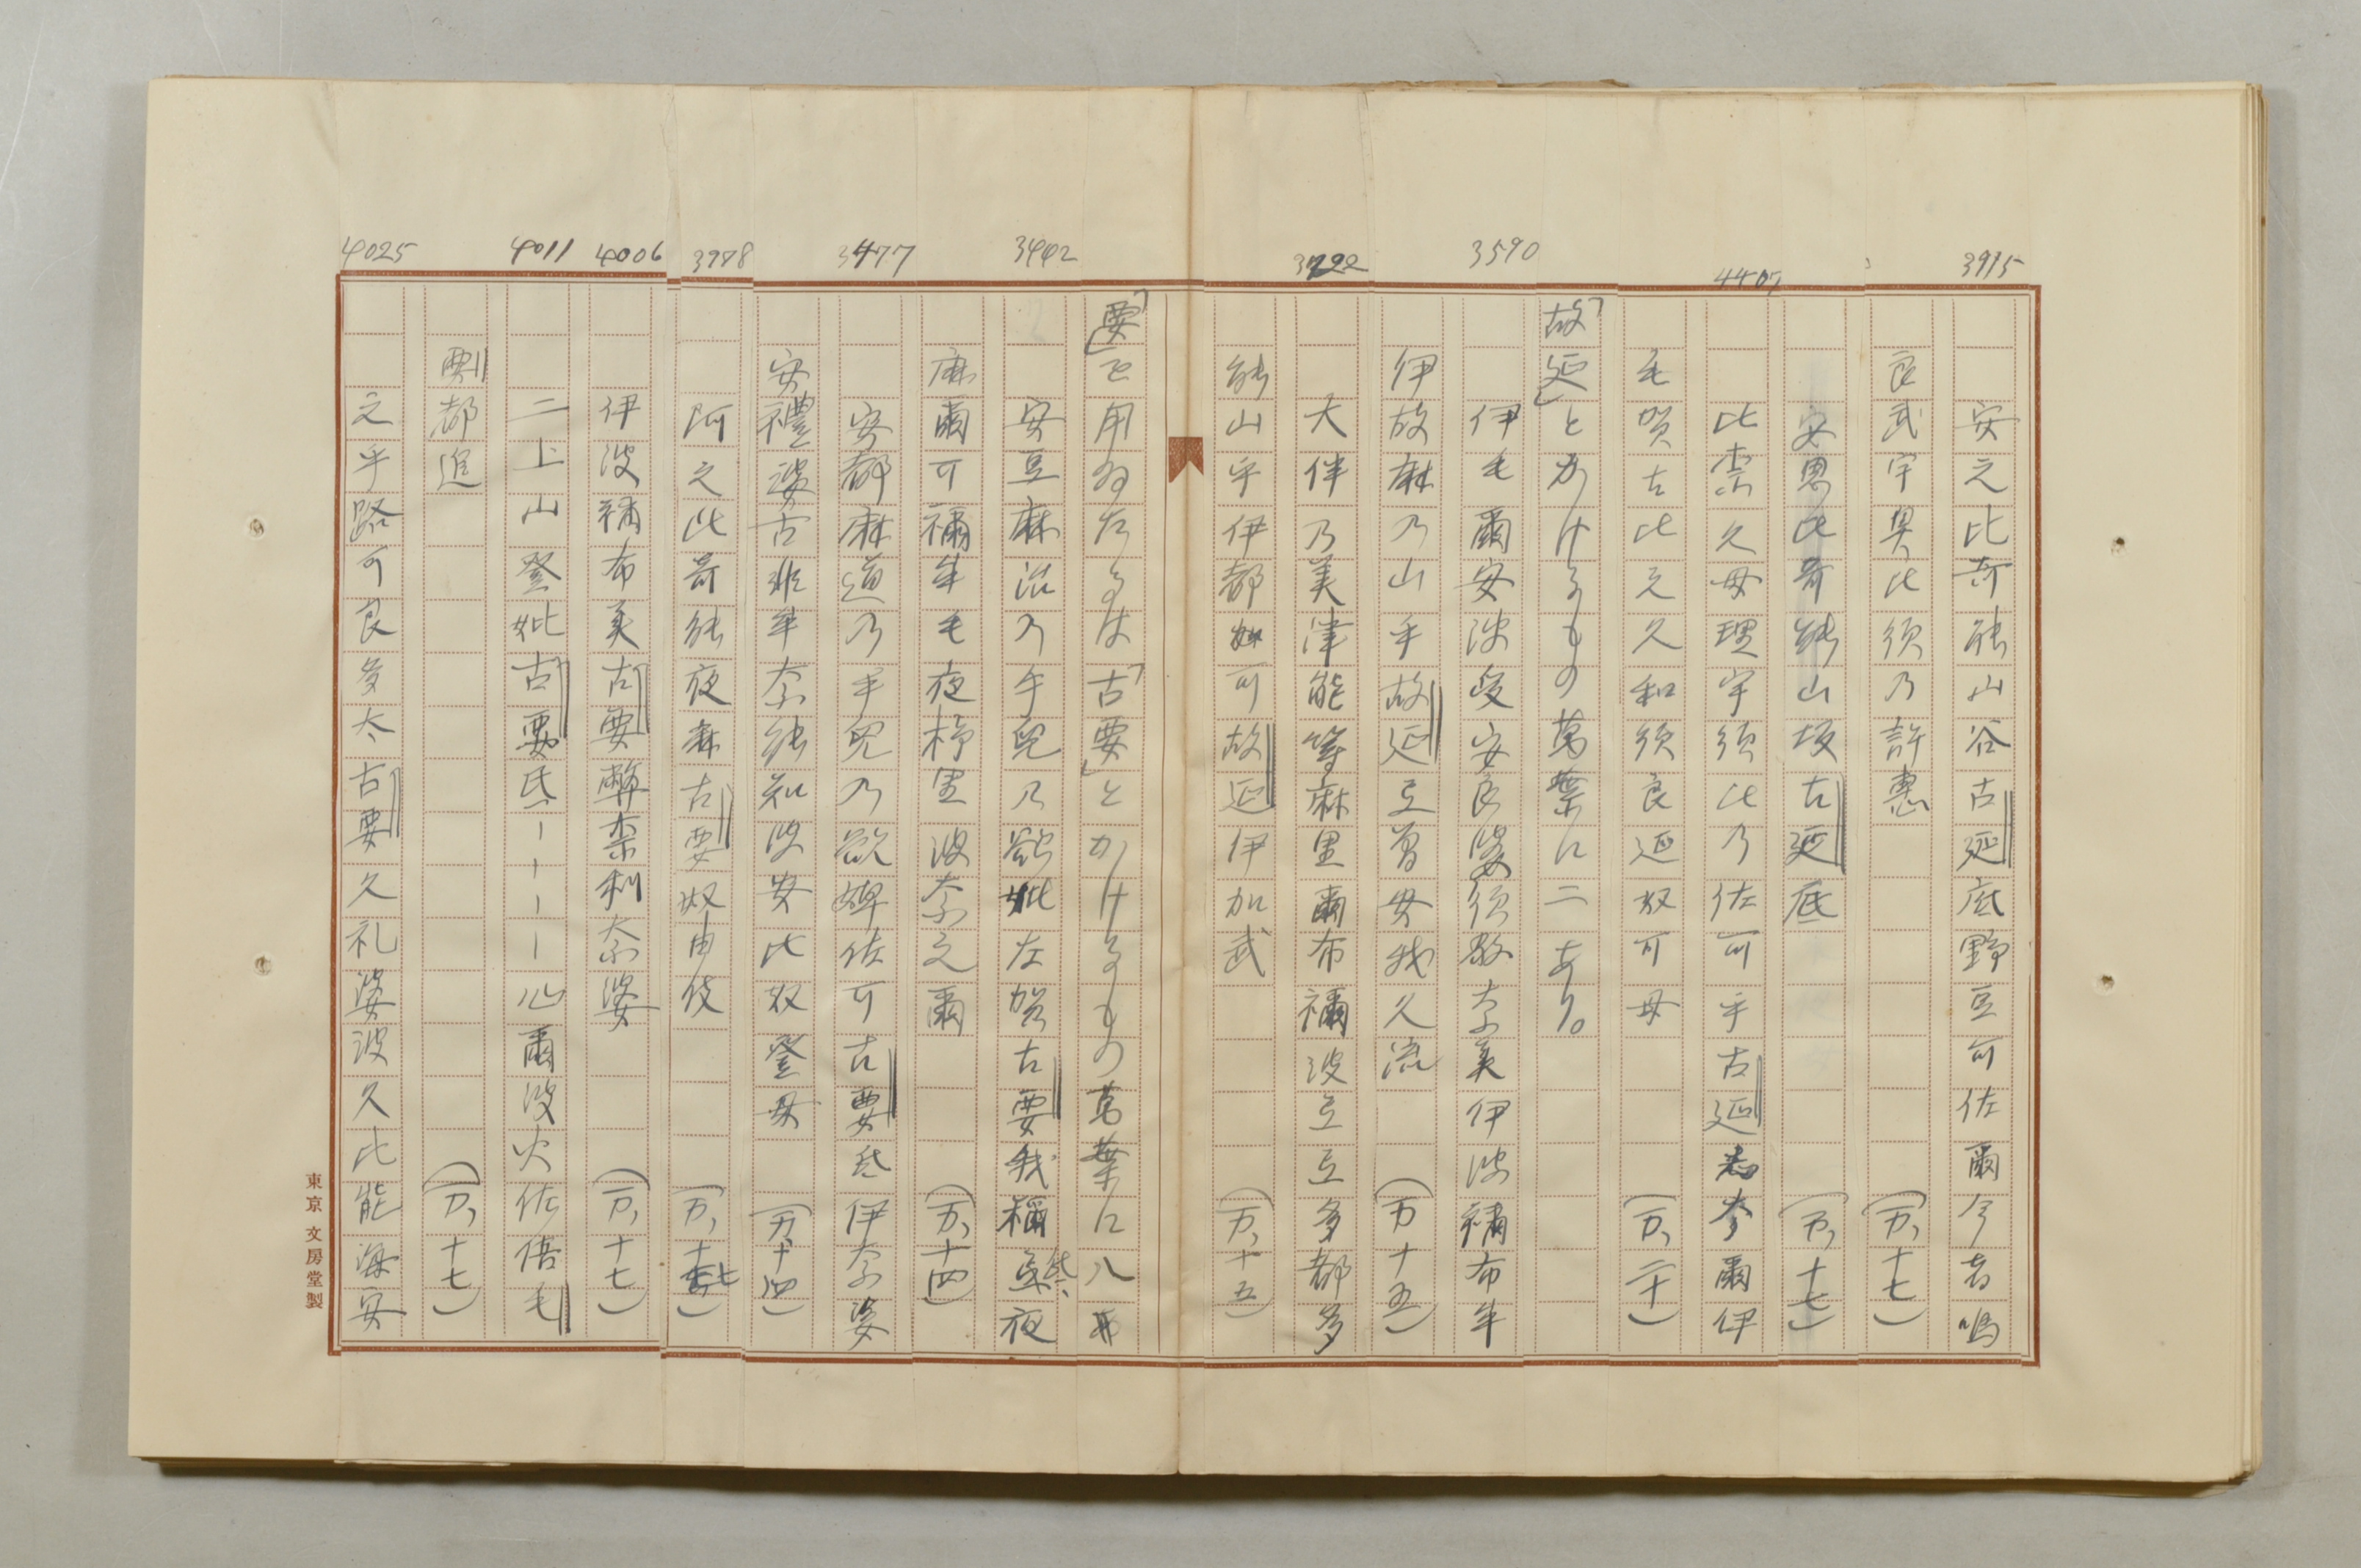 3915
安之比奇能山谷古延底野豆可佐爾今者鳴
良武宇具比須乃許惠 (万、十七)
安思比奇能山坂古延底 (万、十七)
4407
比奈久母理宇須比乃佐可乎古延志夛爾伊
毛賀古比之久和須良延奴可母 (万、二十)
「故延」とかけるもの萬葉に二あり。
3590
伊毛爾安波受安良婆須敝奈美伊波禰布牟
伊故麻乃山乎故延弖曽安我久流 (万十五)
3722
大伴乃美津能等麻里爾布禰波弖弖多都多
能山乎伊都可故延伊加武 (万、十五)
「要」を用ゐたるは「古要」とかけるもの萬葉に八
3442
安豆麻治乃手兒乃欲妣左賀古要我禰弖夜
麻爾可禰牟毛夜杼里波奈之爾 (万、十四)
3477
安都麻道乃手兒乃欲婢佐可古要弖伊奈婆
安禮婆古非牟奈能知波安比奴登母 (万、十四)
3978
阿之比奇能夜麻古要奴由伎 (万、十七)
4006
伊波禰布美古要弊奈利奈婆 (万、十七)
4011
二上山登妣古要氐ーーーー心爾波火佐倍毛
要都追 (万、十七)
4025
之乎路可良多太古要久礼婆波久比能海安
東京 文房堂製